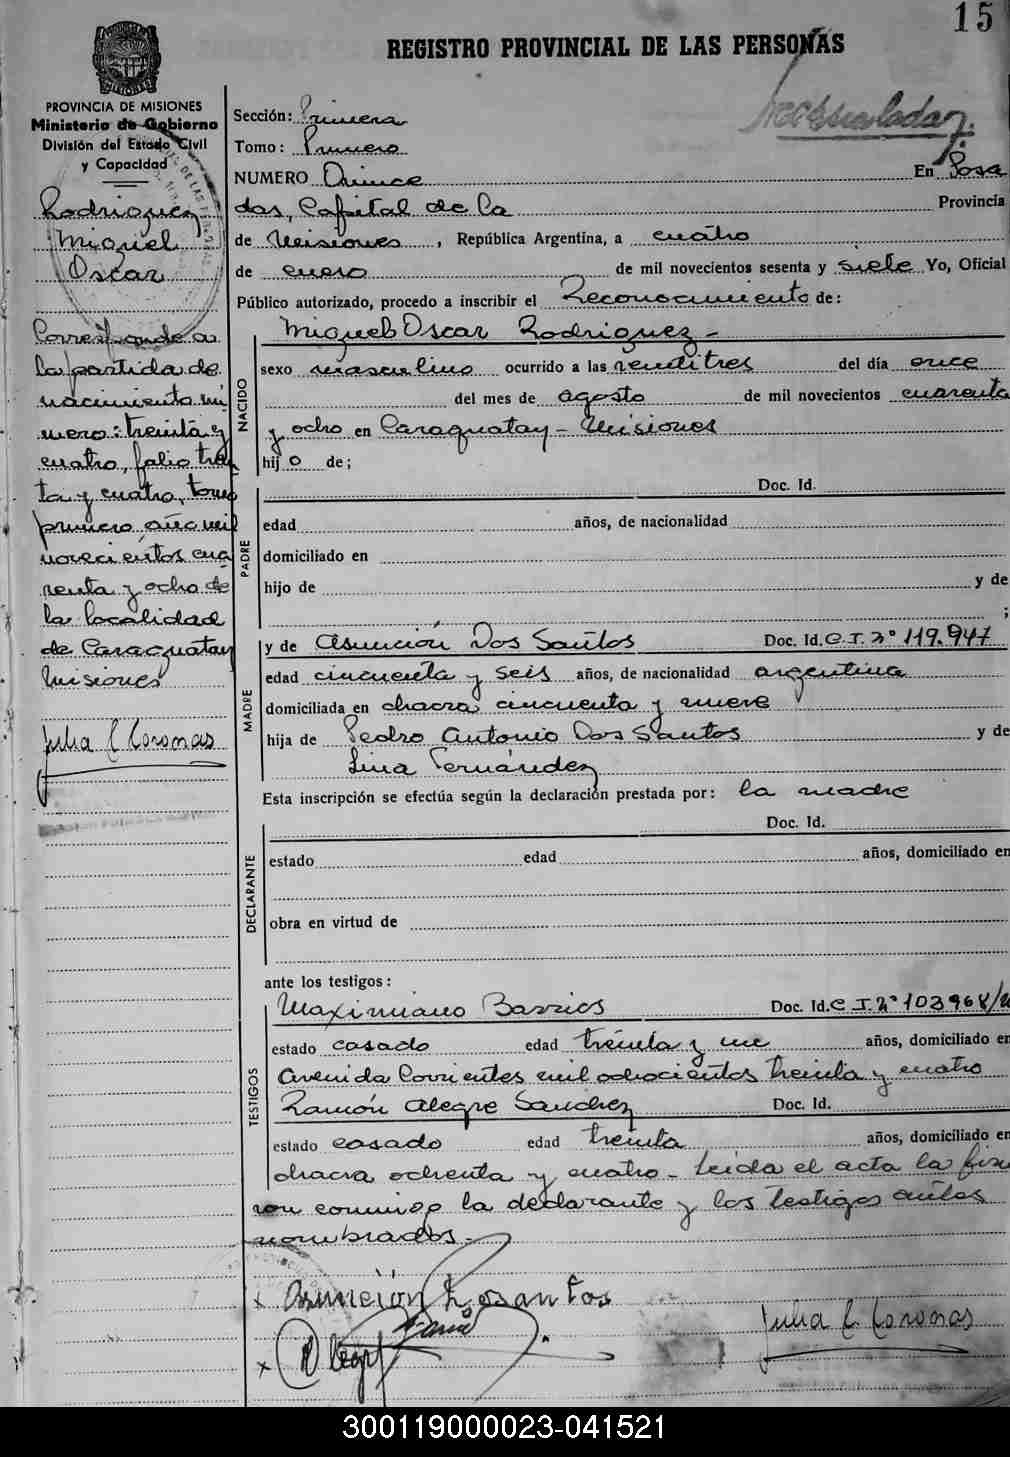 15
REGISTRO PROVINCIAL DE LAS PERSONAS
PROVINCIA DE MISIONES
Ministerio de Gobierno
División del Estado Civil
y Capacidad
Rodriguez
Miguel
Oscar
Corresponde a
la partida de
nacimiento nú
mero: treinta y
cuatro, folio trein
ta y cuatro, tomo
primero año mil
novecientos cua
renta y ocho de
la localidad
de Caraguatay
Misiones
Julia C Coronas
Sección: Primera
Tomo: Primero
NUMERO Quince En Posa
das, Capital de la Provincia
de Misiones, República Argentina, a cuatro
de enero de mil novecientos sesenta y siete Yo, Oficial
Público autorizado, procedo a inscribir el Reconocimiento de:
Miguel Oscar Rodriguez -
NACIDO
sexo masculino ocurrido a las veintitres del día once
del mes de agosto de mil novecientos cuarenta
y ocho en Caraguatay - Misiones
hijo de;
PADRE
Doc. Id.
edad años, de nacionalidad
domiciliado en
hijo de y de
;
MADRE
y de Asunción Dos Santos Doc. Id. C.I. Nº 119.947
edad cincuenta y seis años, de nacionalidad argentina
domiciliada en chacra cincuenta y nueve
hija de Pedro Antonio Dos Santos y de
Lina Fernández
Esta inscripción se efectúa según la declaración prestada por: la madre
DECLARANTE
Doc. Id.
estado edad años, domiciliado en
obra en virtud de
ante los testigos:
TESTIGOS
Maximiano Barrios Doc. Id. C.I. Nº 103968
estado casado edad treinta y un años, domiciliado en
avenida Corrientes mil ochocientos treinta y cuatro
Ramón Alegre Sanchez Doc. Id.
estado casado edad treinta años, domiciliado en
chacra ochenta y cuatro - Leída el acta la firma
ron conmigo la declarante y los testigos antes
nombrados.-
x Asunción Dosantos
x
Julia C. Coronas
300119000023-041521